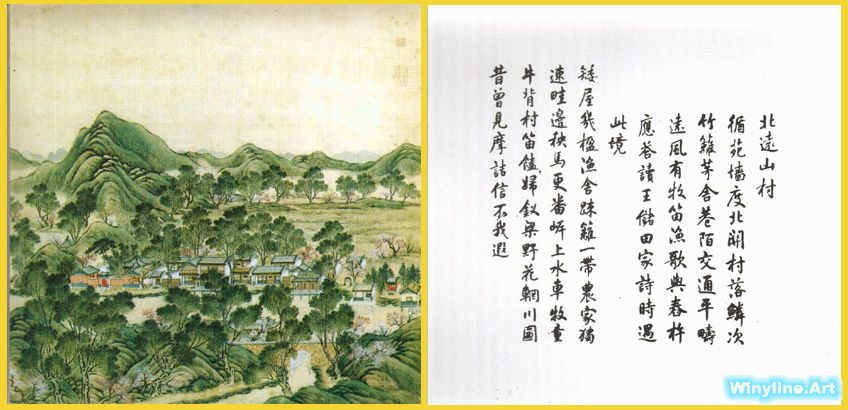 北遠山村
循苑墻度北關村落鱗次
竹籬茅舍巷陌交通平疇
遠風有牧笛漁歌與舂杵
應荅讀王儲田家詩時遇
此境
矮屋幾楹漁舍踈籬一帶農家獨
速畦邊秧馬更番岸上水車牧童
牛背村笛饁婦釵梁野花輞川圖
昔曾見摩詰信不我遐
Winyline.Art